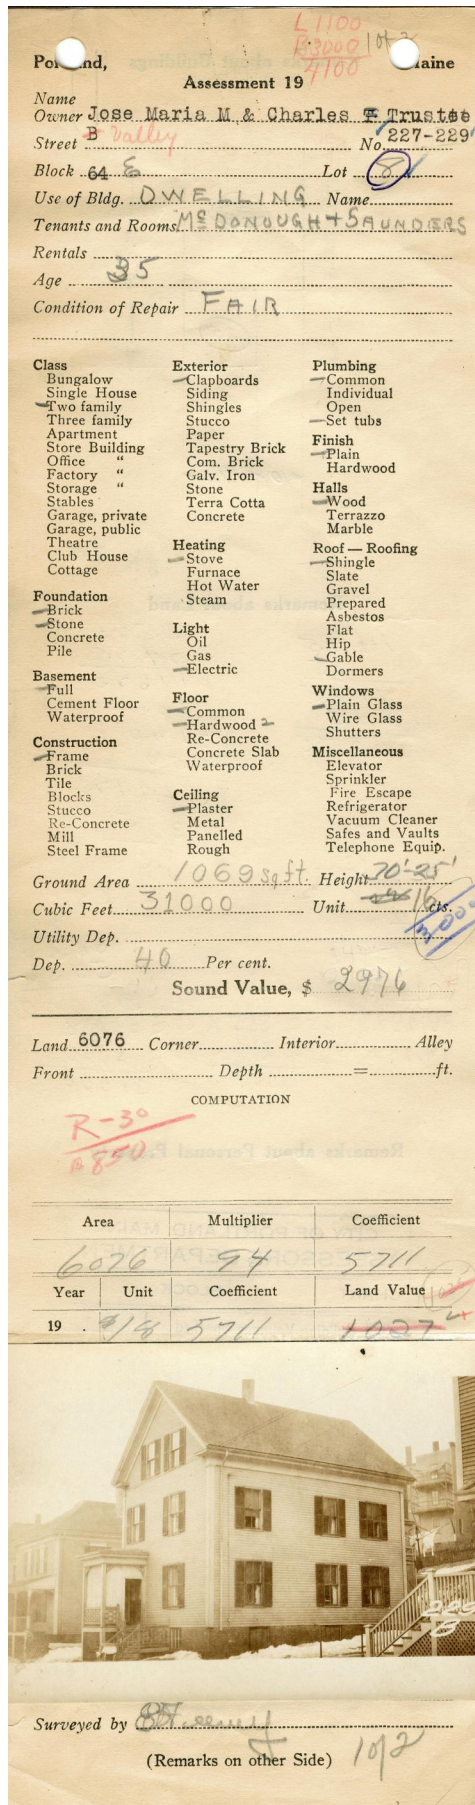 L 1100
B 3000
4100
1 of 2
Portland, Maine
Assessment 19
Name
Owner Jose Maria M & Charles F Trustee
Street B + Valley No. 227-229
Block 64 E Lot 8
Use of Bldg. DWELLING Name
Tenants and Rooms. McDONOUGH + SAUNDERS
Rentals
Age 35
Condition of Repair FAIR
Class
Bungalow
Single House
Two family
Three family
Apartment
Store Building
Office "
Factory "
Storage "
Stables
Garage, private
Garage, public
Theatre
Club House
Cottage
Foundation
Brick
Stone
Concrete
Pile
Basement
Full
Cement Floor
Waterproof
Construction
Frame
Brick
Tile
Blocks
Stucco
Re-Concrete
Mill
Steel Frame
Exterior
Clapboards
Siding
Shingles
Stucco
Paper
Tapestry Brick
Com. Brick
Galv. Iron
Stone
Terra Cotta
Concrete
Heating
Stove
Furnace
Hot Water
Steam
Light
Oil
Gas
Electric
Floor
Common
Hardwood 2
Re-Concrete
Concrete Slab
Waterproof
Ceiling
Plaster
Metal
Panelled
Rough
Plumbing
Common
Individual
Open
Set tubs
Finish
Plain
Hardwood
Halls
Wood
Terrazzo
Marble
Roof — Roofing
Shingle
Slate
Gravel
Prepared
Asbestos
Flat
Hip
Gable
Dormers
Windows
Plain Glass
Wire Glass
Shutters
Miscellaneous
Elevator
Sprinkler
Fire Escape
Refrigerator
Vacuum Cleaner
Safes and Vaults
Telephone Equip.
Ground Area 1069 sq ft. Height 20'-25'
Cubic Feet 31000 Unit 16 cts.
3000
Utility Dep.
Dep. 40 Per cent.
Sound Value, $ 2976
Land 6076 Corner Interior Alley
Front Depth = ft.
COMPUTATION
R-30
B 850
Area Multiplier Coefficient
6076 94 5711
Year Unit Coefficient Land Value
19 . $/18 5711 1027
Surveyed by
(Remarks on other Side) 1 of 2